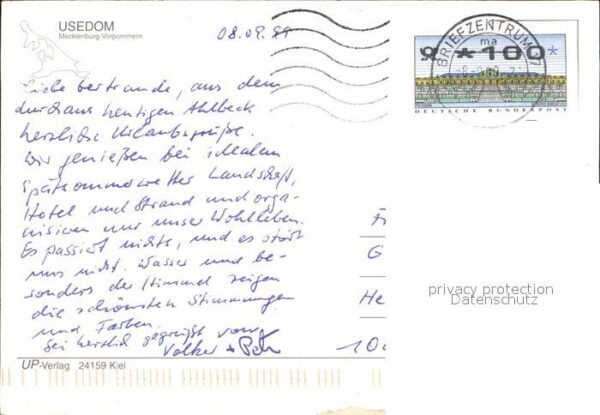 USEDOM
Mecklenburg-Vorpommern
08.09.99
BRIEFZENTRUM
ma
*100*
DEUTSCHE BUNDESPOST
aus dem
durchaus heutigen Ahlbeck
herzliche Urlaubsgrüße.
Wir genießen bei idealem
Spätsommerwetter Landschaft,
Hotel und Strand und orga-
nisieren nur unser Wohlleben.
Es passiert nichts, und es stört
uns nicht. Wasser und be-
sonders der Himmel zeigen
die schönsten Stimmungen
und Farben.
Sei herzlich gegrüßt von
Volker +
G
He
privacy protection
Datenschutz
UP-Verlag 24159 Kiel